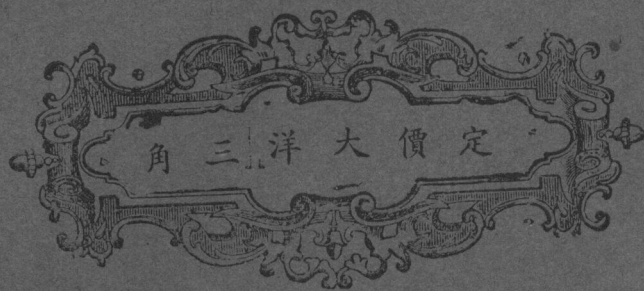 定價大洋三角